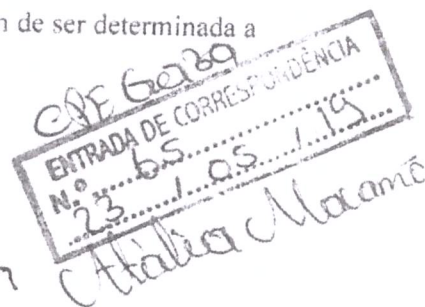 n de ser determinada a
CPE Gaza
ENTRADA DE CORRESPONDÊNCIA
N.º 65
23 / 05 / 19
Atália Macamo